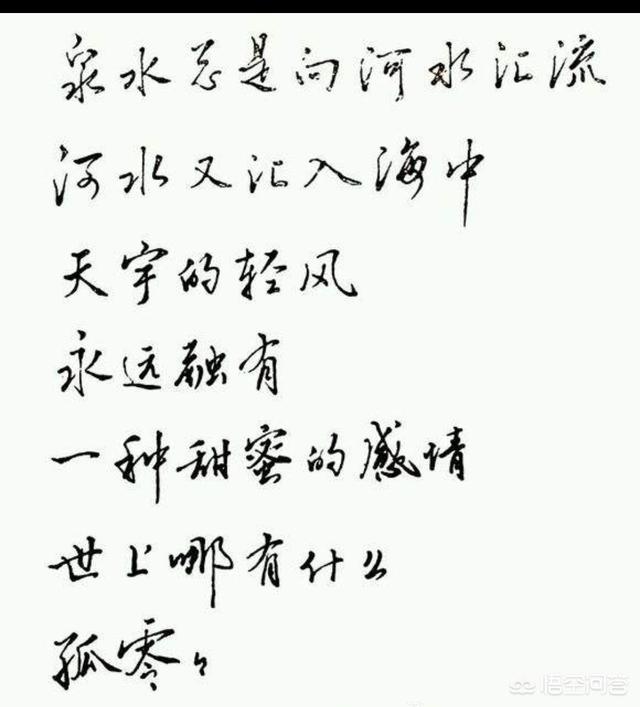 泉水总是向河水汇流
河水又汇入海中
天宇的轻风
永远融有
一种甜蜜的感情
世上哪有什么
孤零々
悟空问答